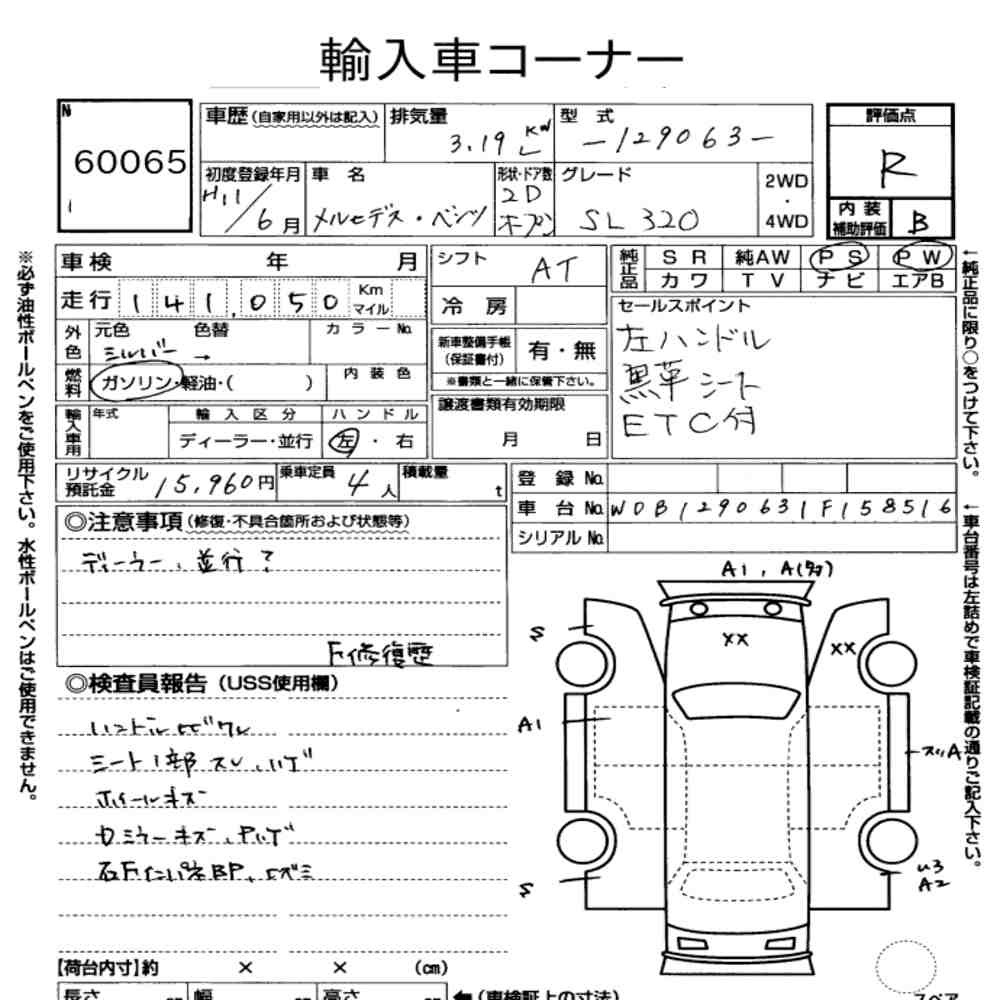 輸入車コーナー
N
60065
車歴 (自家用以外は記入)
排気量
3.19 KW L
型 式
-129063-
評価点
R
初度登録年月
H11/6月
車 名
メルセデス・ベンツ
形状・ドア数
2D
オープン
グレード
SL320
2WD
・
4WD
内 装
補助評価
B
車 検 年 月
走行 141,050 Km マイル
外色
元色 色替 カラーNo.
シルバー →
燃料
ガソリン・軽油・( )
内 装 色
輸入車用
年式
輸 入 区 分
ディーラー・並行
ハ ン ド ル
左 ・ 右
シフト
AT
冷 房
新車整備手帳
(保証書付)
有・無
※書類と一緒に保管下さい。
譲渡書類有効期限
月 日
純正品
S R 純AW P S P W
カ ワ T V ナ ビ エアB
セールスポイント
左ハンドル
黒革シート
ETC付
リサイクル
預託金
15,960円
乗車定員
4人
積載量
t
登 録 No.
車 台 No. WDB1290631F158516
シリアル No.
◎注意事項 (修復・不具合箇所および状態等)
ディーラー、並行?
F修復歴
◎検査員報告 (USS使用欄)
シート1部スレ、ハゲ
ホイールキズ
A1, A
XX
XX
S
A1
A
S
U3
A2
【荷台内寸】約 × × (cm)
長さ 幅 高さ
(車検証上の寸法)
スペア
※必ず油性ボールペンをご使用下さい。水性ボールペンはご使用できません。
←純正品に限り○をつけて下さい。
←車台番号は左詰めで車検証記載の通りご記入下さい。